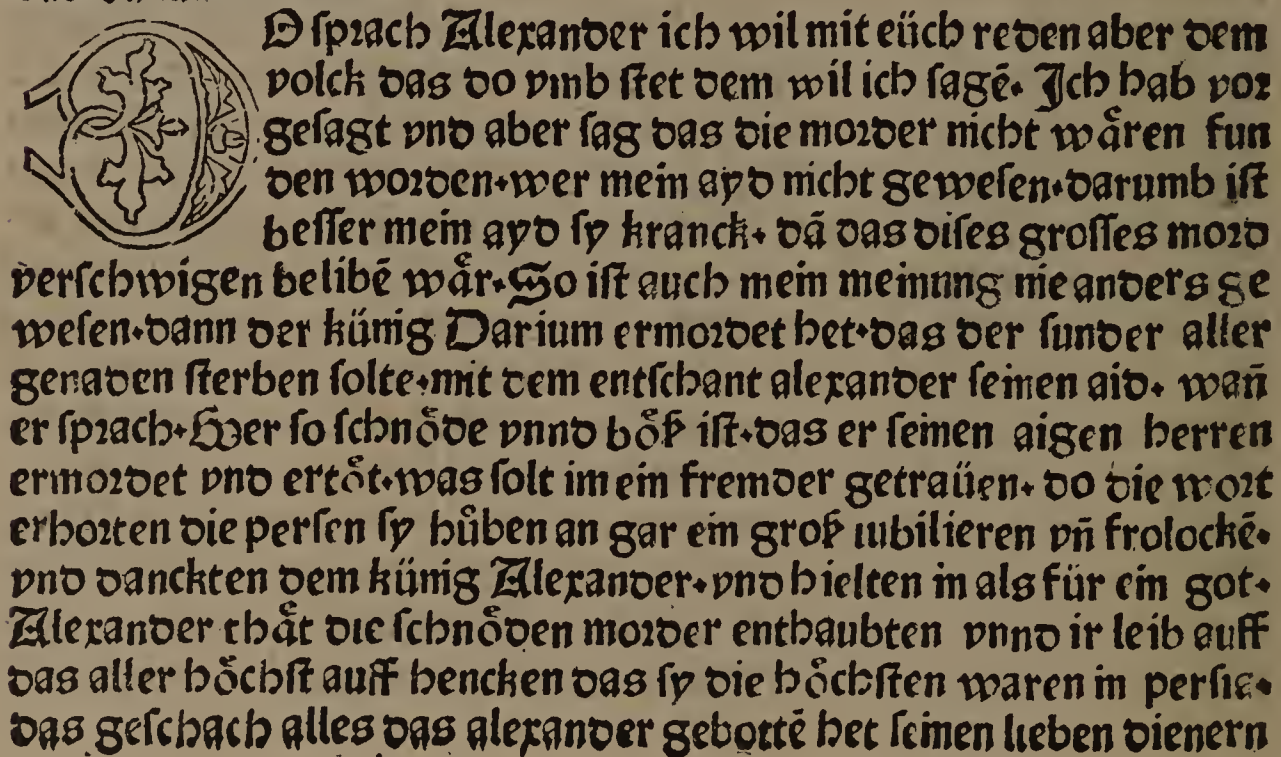 DO sprach Alexander ich wil mit eüch reden aber dem
volck das do vmb stet dem wil ich sagē. Ich hab vor
gesagt vnd aber sag das die morder nicht wåren fun
den worden.wer mein ayd nicht gewesen.darumb ist
besser mein ayd sy kranck. dā das dises grosses mord
verschwigen belibē wår.So ist auch mein meinung nie anders ge
wesen.dann der künig Darium ermordet het.das der sunder aller
genaden sterben solte.mit dem entschant alexander seinen aid. wañ
er sprach.Wer so schnöde vnnd böß ist.das er seinen aigen herren
ermordet vnd ertöt.was solt im ein fremder getraüen. do die wort
erhorten die persen sy hůben an gar ein groß iubilieren vñ frolockē.
vnd danckten dem künig Alexander.vnd hielten in als für ein got.
Alexander thåt die schnöden morder enthaubten vnnd ir leib auff
das aller höchst auff hencken das sy die höchsten waren in persia.
das geschach alles das alexander gebottē het seinen lieben dienern